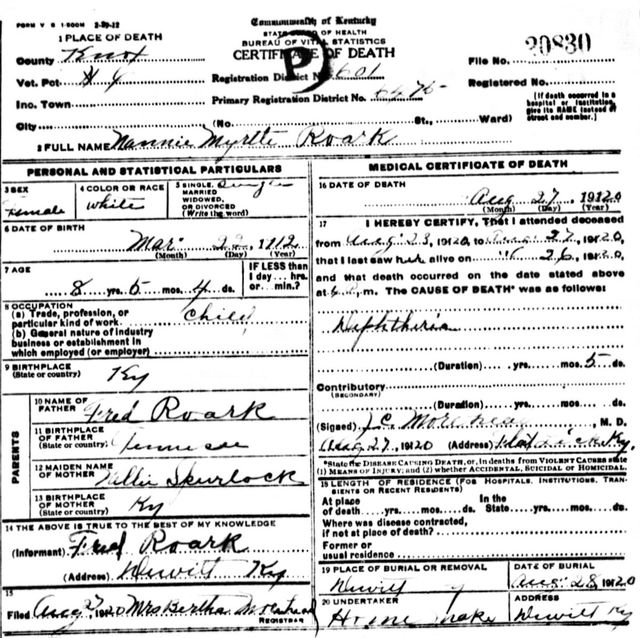 FORM V S 1-500M 2-29-12
Commonwealth of Kentucky
STATE OF HEALTH
BUREAU OF VITAL STATISTICS
CERTIFICATE OF DEATH
P
1 PLACE OF DEATH
County Knox
Vet. Pct
Inc. Town
City
Registration District No 601
Primary Registration District No. 6476
(No St., Ward)
File No. 20830
Registered No.
(If death occurred in a hospital or institution, give its NAME instead of street and number.)
2 FULL NAME Nannie Myrtle Roark
PERSONAL AND STATISTICAL PARTICULARS
3 SEX
Female
4 COLOR OR RACE
White
5 SINGLE, MARRIED WIDOWED, OR DIVORCED (Write the word)
Single
6 DATE OF BIRTH
Mar 1912
(Month) (Day) (Year)
7 AGE
8 yrs. 5 mos. 4 ds.
IF LESS than 1 day.... hrs. or ....min.?
8 OCCUPATION
(a) Trade, profession, or particular kind of work Child
(b) General nature of industry business or establishment in which employed (or employer)
9 BIRTHPLACE
(State or country) Ky
PARENTS
10 NAME OF FATHER Fred Roark
11 BIRTHPLACE OF FATHER
(State or country) Tennessee
12 MAIDEN NAME OF MOTHER Nellie Skurlock
13 BIRTHPLACE OF MOTHER
(State or country) Ky
14 THE ABOVE IS TRUE TO THE BEST OF MY KNOWLEDGE
(Informant) Fred Roark
(Address) Dewitt Ky
15
Filed Aug 27 1920 Mrs Bertha
REGISTRAR
MEDICAL CERTIFICATE OF DEATH
16 DATE OF DEATH
Aug 27 1920
(Month) (Day) (Year)
17 I HEREBY CERTIFY, That I attended deceased
from Aug 23, 1920, to Aug 27, 1920,
that I last saw her alive on " 26, 1920,
and that death occurred on the date stated above
at m. The CAUSE OF DEATH* was as follows:
Diphtheria
(Duration) yrs. mos. 5 ds.
Contributory
(SECONDARY)
(Duration) yrs. mos. ds.
(Signed) J.C. , M. D.
Aug 27, 1920 (Address) Ky.
*State the DISEASE CAUSING DEATH, or, in deaths from VIOLENT CAUSES state (1) MEANS OF INJURY; and (2) whether ACCIDENTAL, SUICIDAL or HOMICIDAL.
18 LENGTH OF RESIDENCE (FOR HOSPITALS, INSTITUTIONS, TRANSIENTS OR RECENT RESIDENTS)
At place of death yrs. mos. ds. In the State yrs. mos. ds.
Where was disease contracted, if not at place of death?
Former or usual residence
19 PLACE OF BURIAL OR REMOVAL
Dewitt
DATE OF BURIAL
Aug 28 1920
20 UNDERTAKER
Home make
ADDRESS
Dewitt Ky